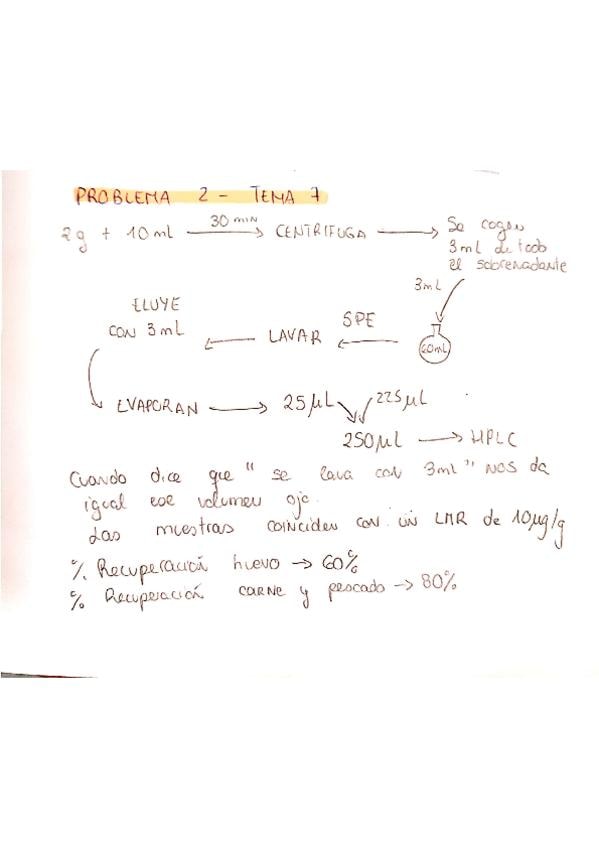 PROBLEMA 2 - TEMA 7
2g + 10ml 30 min CENTRIFUGA Se cogen
3ml de todo
el sobrenadante
3mL
60mL
SPE
LAVAR
ELUYE
CON 3mL
EVAPORAN 25µL 225µL
250µL HPLC
Cuando dice que "se lava con 3ml" NOS da
igual ese volumen ojo.
Las muestras coinciden con un LMR de 10µg/g
% Recuperación huevo → 60%
% Recuperación carne y pescado → 80%